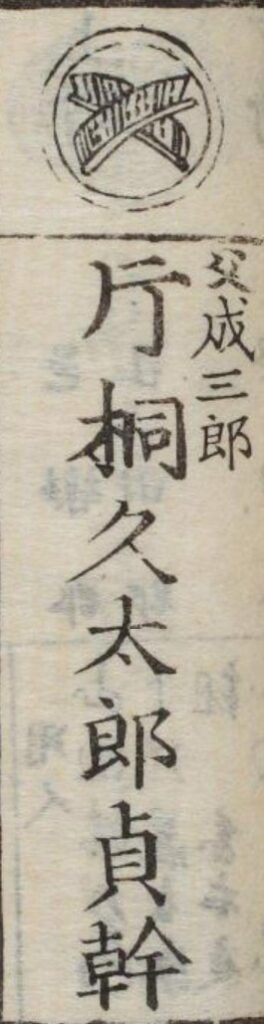 父成三郎
片桐久太郎貞幹